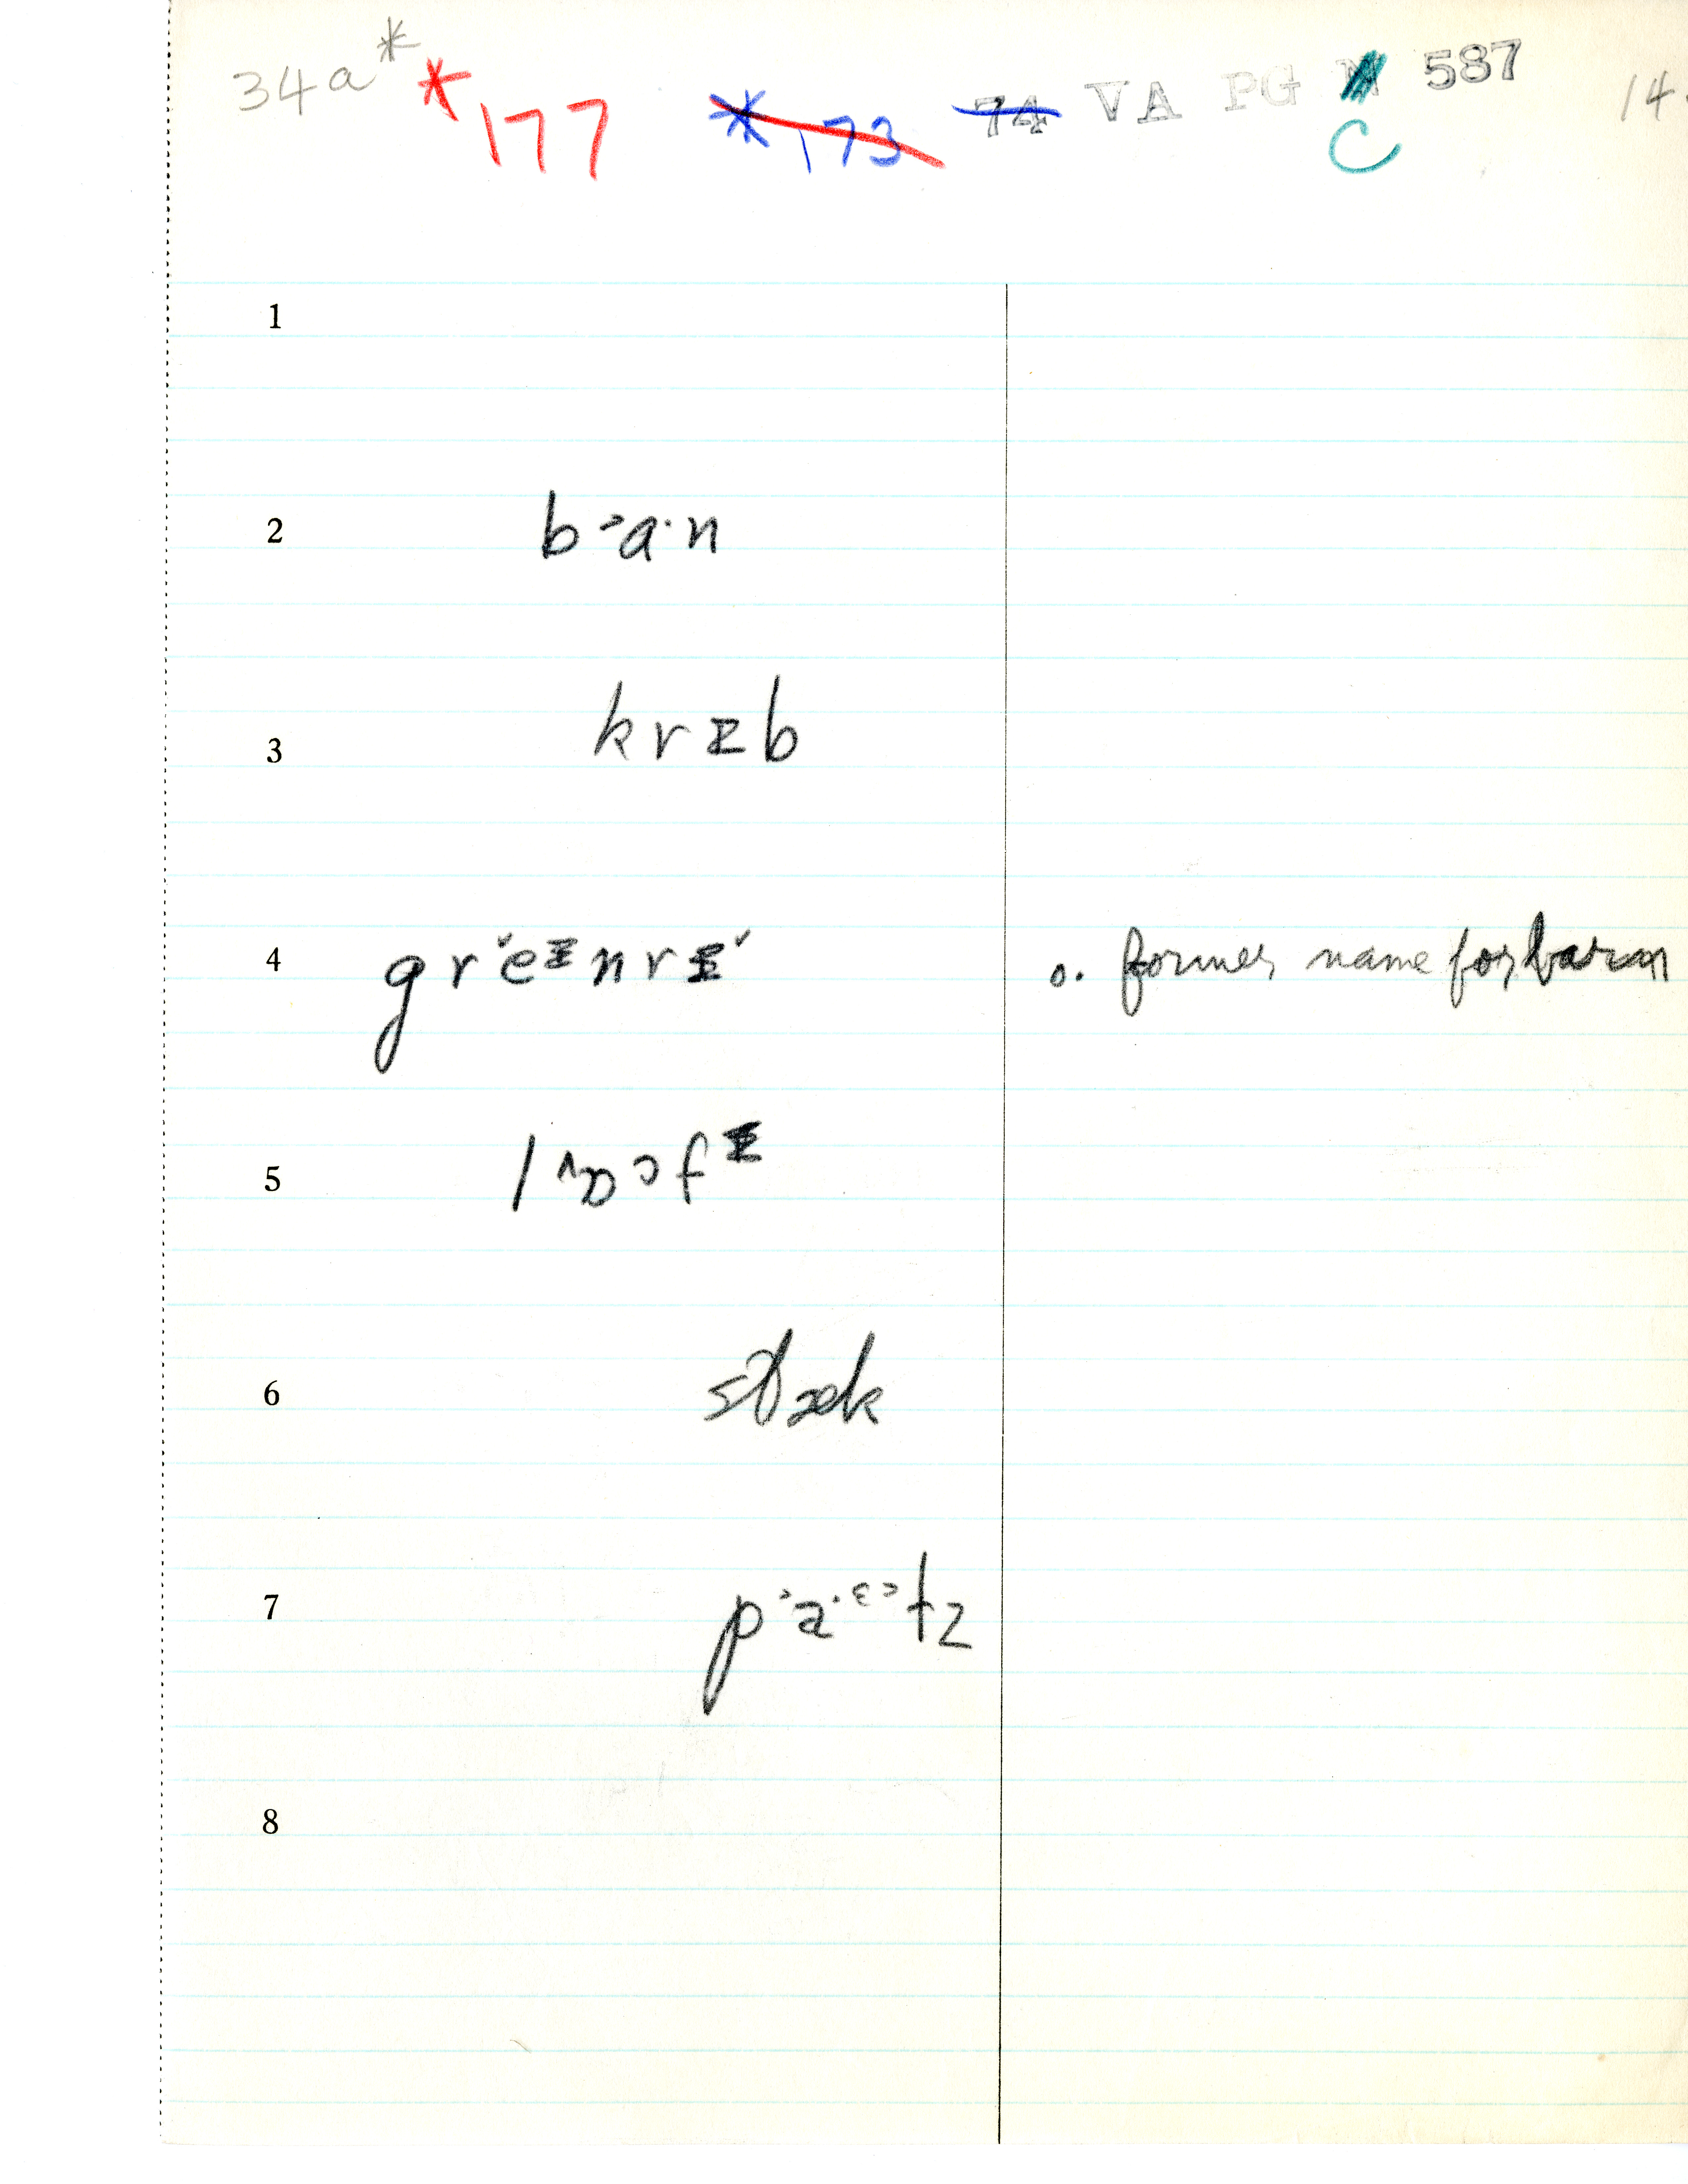 34a* *177 *173 74 VA PG N 587 14.
C
1
2 b ᵓa· n
3 k r ɪ b
4 g r ˇe ᶦ n r ɪ ˇ o. former name for barn
5 l ɔ f
6 stæk
7 p ᵓa· ᵋᵓ t z
8